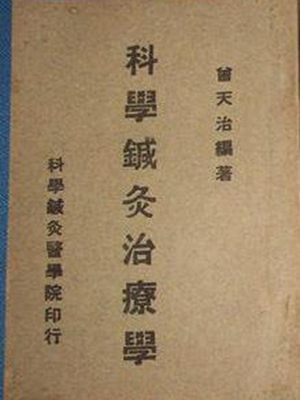 曾天治編著
科學鍼灸治療學
科學鍼灸醫學院印行